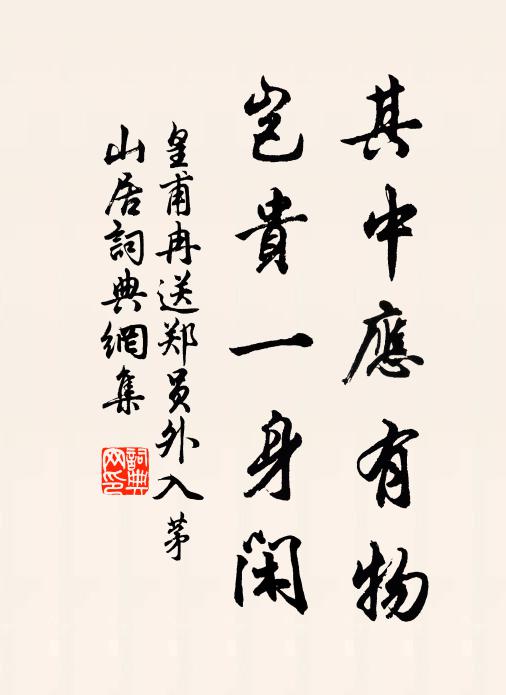 其中應有物
豈貴一身閑
皇甫冉送郑员外入茅
山居詞典網集
詞典
网印